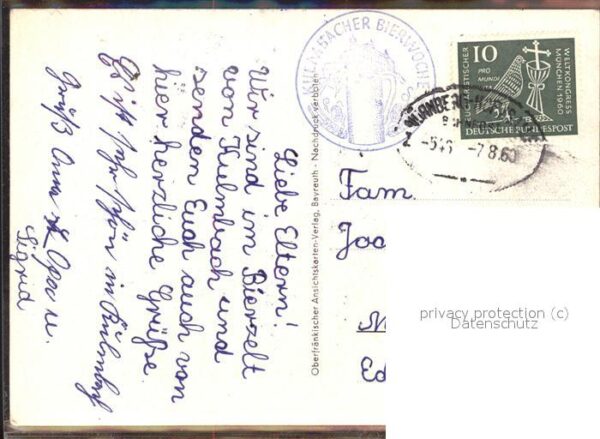 Liebe Eltern!
Wir sind im Bierzelt
von Kulmbach und
senden Euch auch von
hier herzliche Grüße.
Es ist sehr schön in Kulmbach
Gruß Oma u. Opa u.
Sigrid
Oberfränkischer Ansichtskarten-Verlag, Bayreuth - Nachdruck verboten
KULMBACHER BIERWOCHE
10
PRO
MUNDI
EUCHARISTISCHER
WELTKONGRESS
MÜNCHEN 1960
DEUTSCHE BUNDESPOST
NÜRNBERG
7.8.60
Fam.
Joa
Ed
privacy protection (c)
Datenschutz